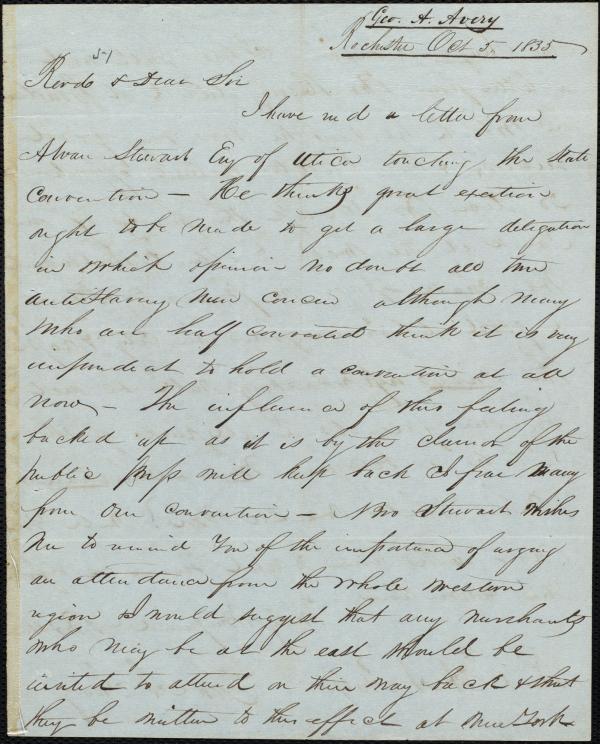 Geo. A. Avery
Rochester Oct 5, 1835
51
Revd & Dear Sir
I have recd a letter from
Alvan Stewart Esq of Utica touching the State
Convention — He thinks great exertion
ought to be made to get a large delegation
in which opinion no doubt all true
antislavery men concur although many
who are half converted think it is very
imprudent to hold a convention at all
now — The influence of this feeling
backed up as it is by the clamor of the
public press will keep back I fear many
from our convention — Bro Stewart wishes
me to remind you of the importance of urging
an attendance from the whole western
region & I would suggest that any merchants
who may be at the east should be
invited to attend on their way back & that
they be written to this effect at New York